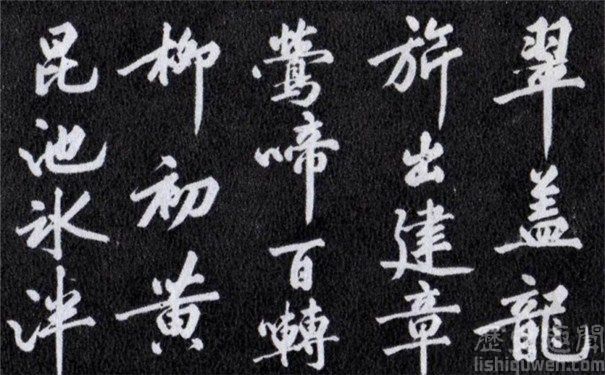 翠盖龍
旂出建章
鶯啼百囀
柳初黄
昆池氷泮
歷史趣聞
lishiquwen.com